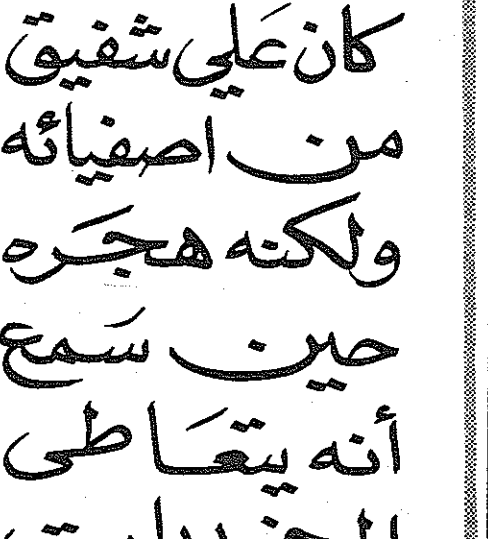 كان عَلي شفيق
من اصفيائه
ولكنه هجَره
حين سَمع
أنه يتعَاطى